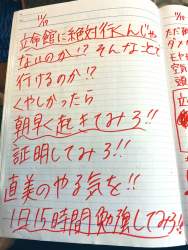 11/10
立命館に絶対行くんじゃ
ないのか!? そんなことで
行けるのか!?
くやしかったら
朝早く起きてみろ!!
証明してみろ!!
直美のやる気を!!
1日15時間勉強してみろ!!
11/10